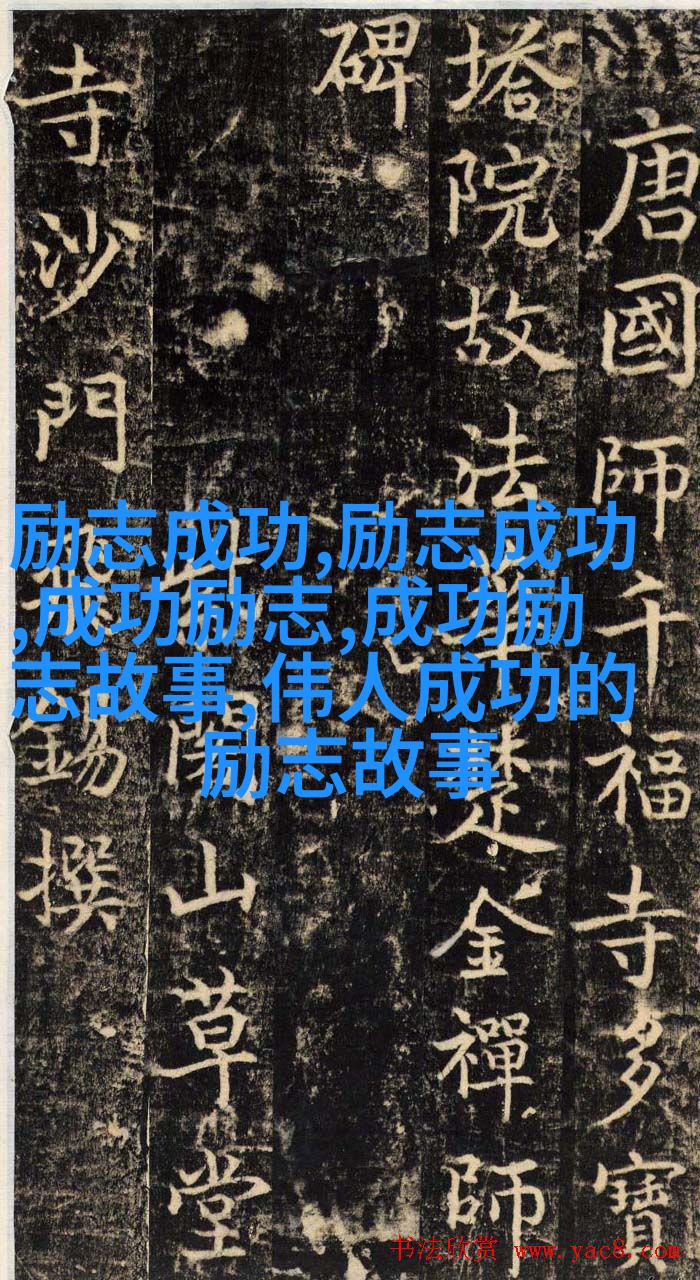 唐國師千福寺多寶
塔院故法華楚金禪師
碑
閣山草堂
寺沙門飛錫撰
励志成功,励志成功
,成功励志,成功励
志故事,伟人成功的
励志故事
书法欣赏 www.yac8.com